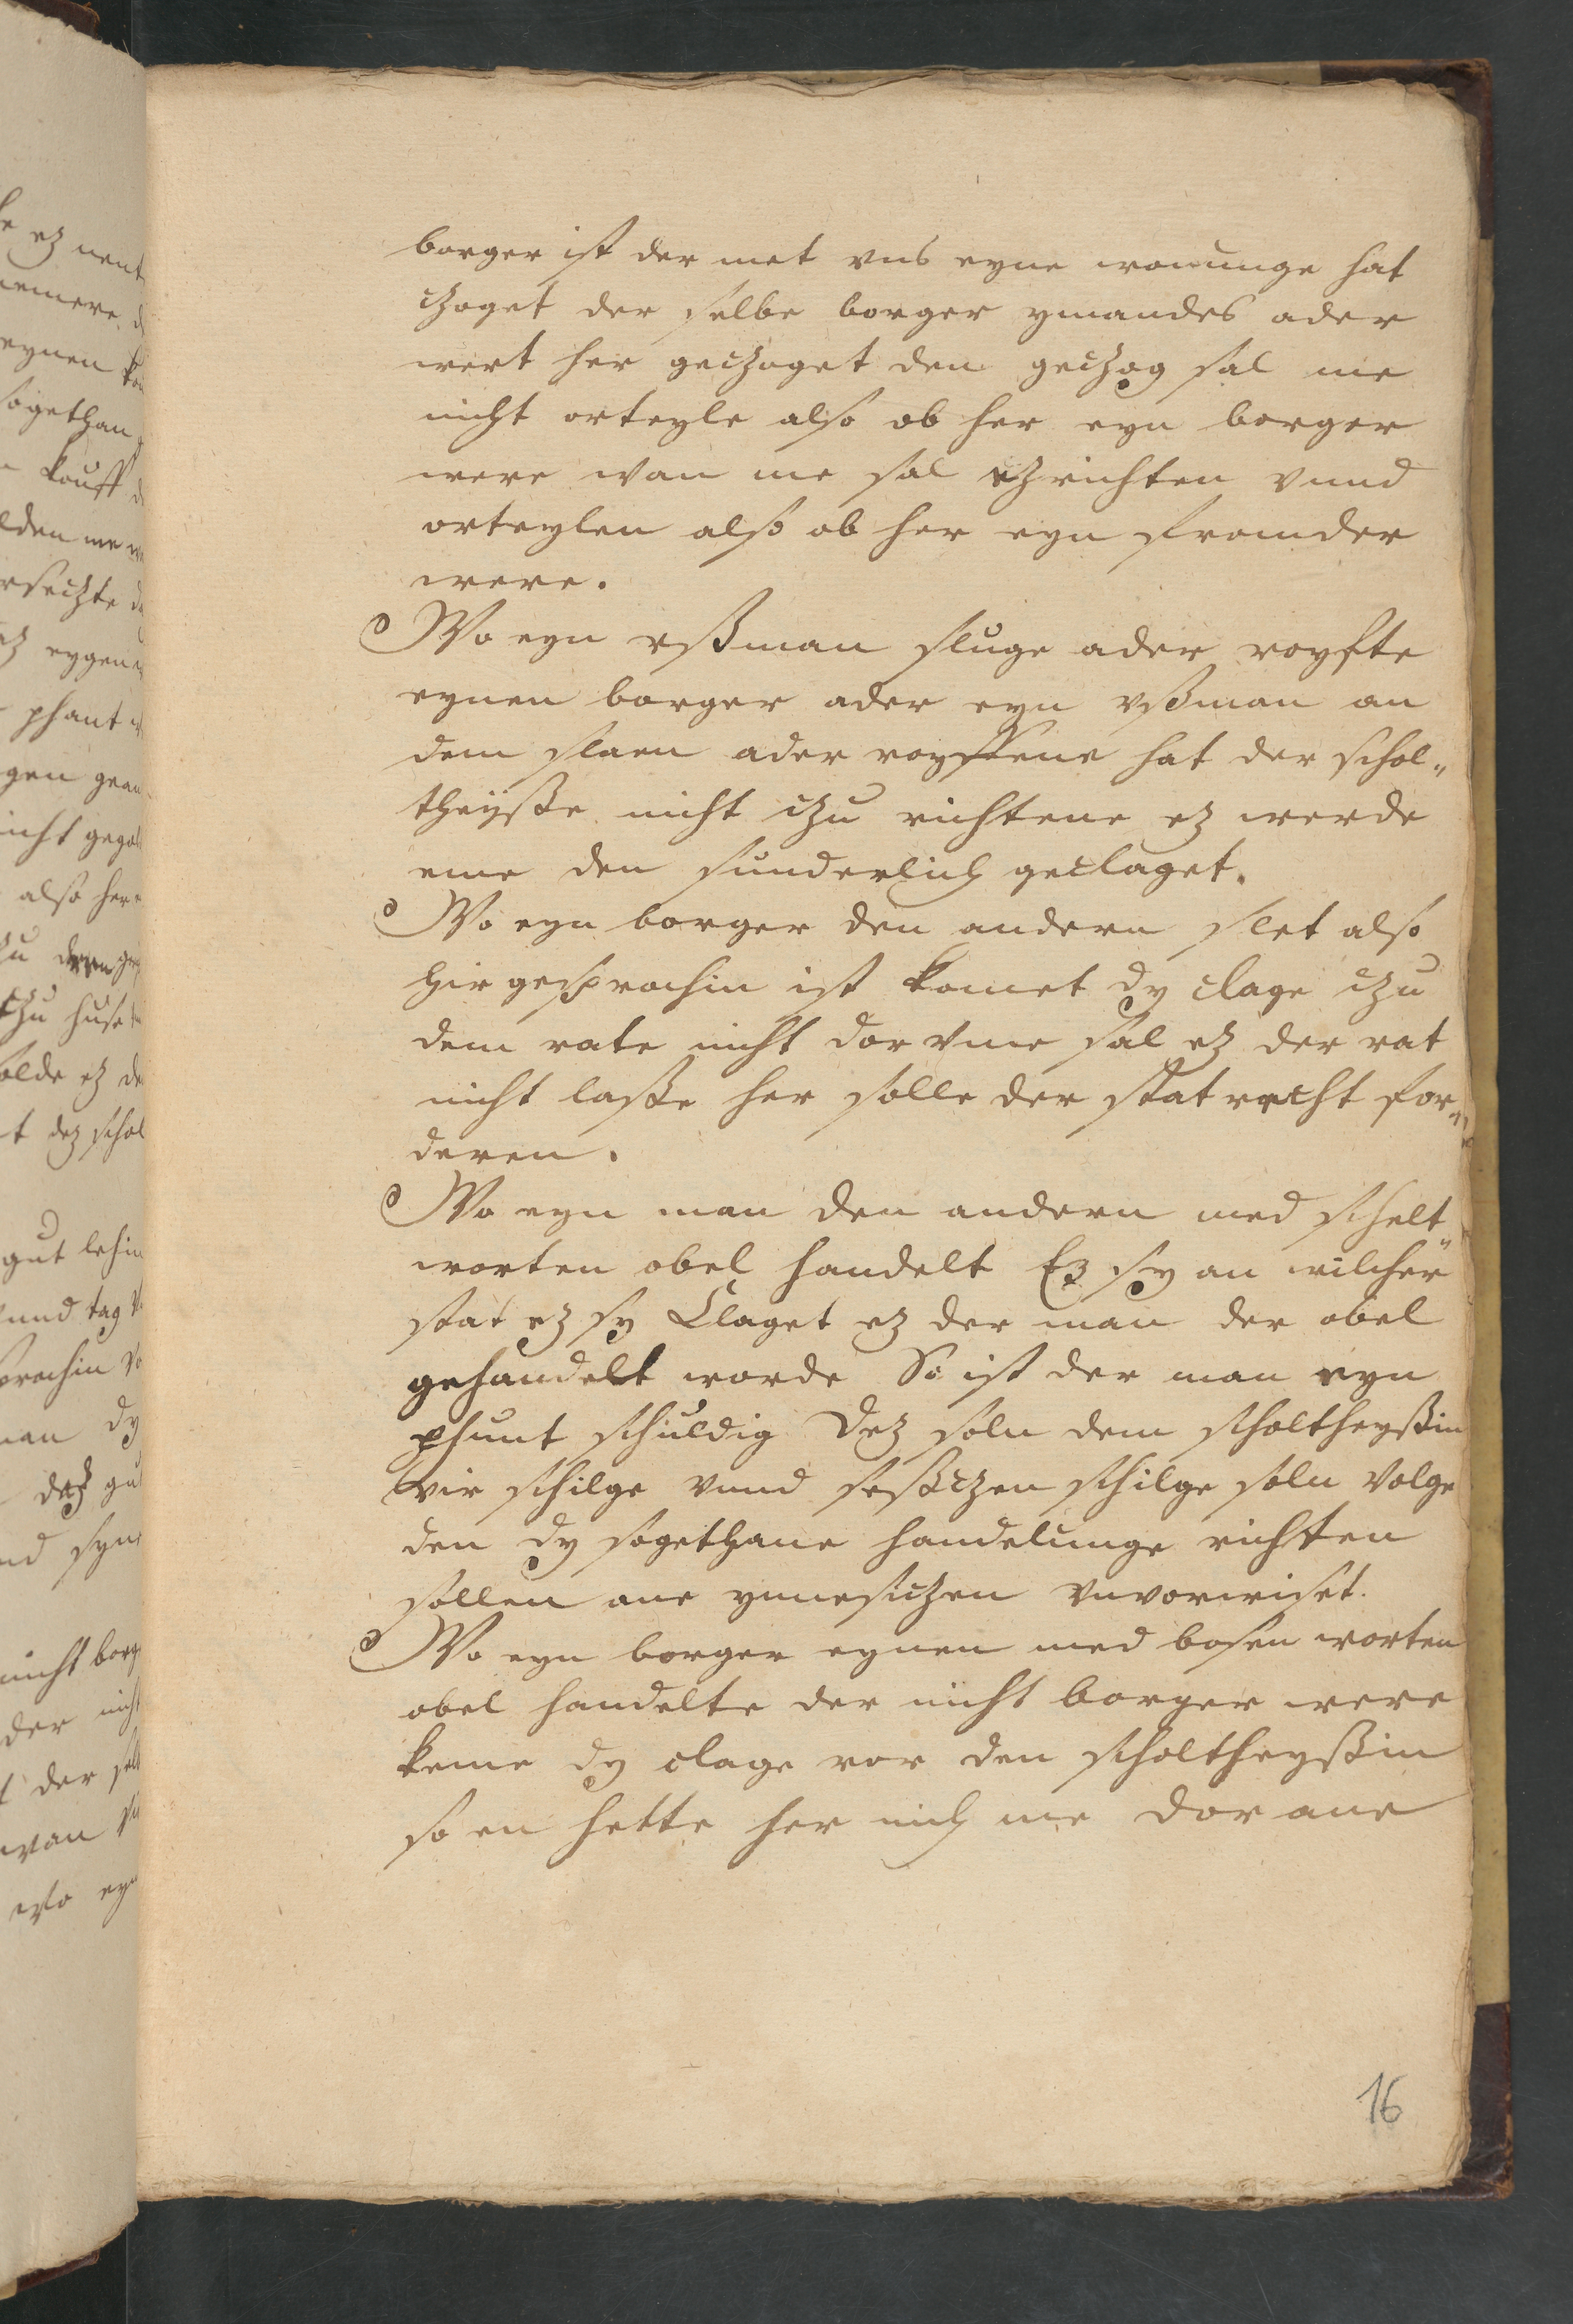 borger ist der met vns eyne wonunge hat
czoget der selbe borger ymandes ader
wert her geczoget den geczog sal me
nicht orteyle also ob her eyn borger
were wan me sal ez richten vnnd
orteylen also ob her eyn fromder
were.
Wo eyn vßman sluge ader royfte
eynen borger ader eyn vßman an
dem slaen ader royffene hat der schol„
theyße nicht czu richtene ez werde
eme den sunderlich geclaget.
Wo eyn borger den andern slet also
hir gesprochin ist komet dy clage czu
dem rate nicht dor vme sal ez der rat
nicht laße her solle der stat recht for„
deren.
Wo eyn man den andern med schelt„
worten obel handelt Ez sy an wilcher
stat ez sy Claget ez der man der obel
gehandelt worde So ist der man eyn
phunt schuldig Dez soln dem scholtheyßin
vir schilge vnnd seßczen schilge soln volge
den dy sogethane handelunge richten
sollen ane ynnesiczen vnvorwiset.
Wo eyn borger eynen med bosen worten
obel handelte der nicht borger were
keme dy clage vor den scholtheyßin
so en hette her nich me dor ane
16